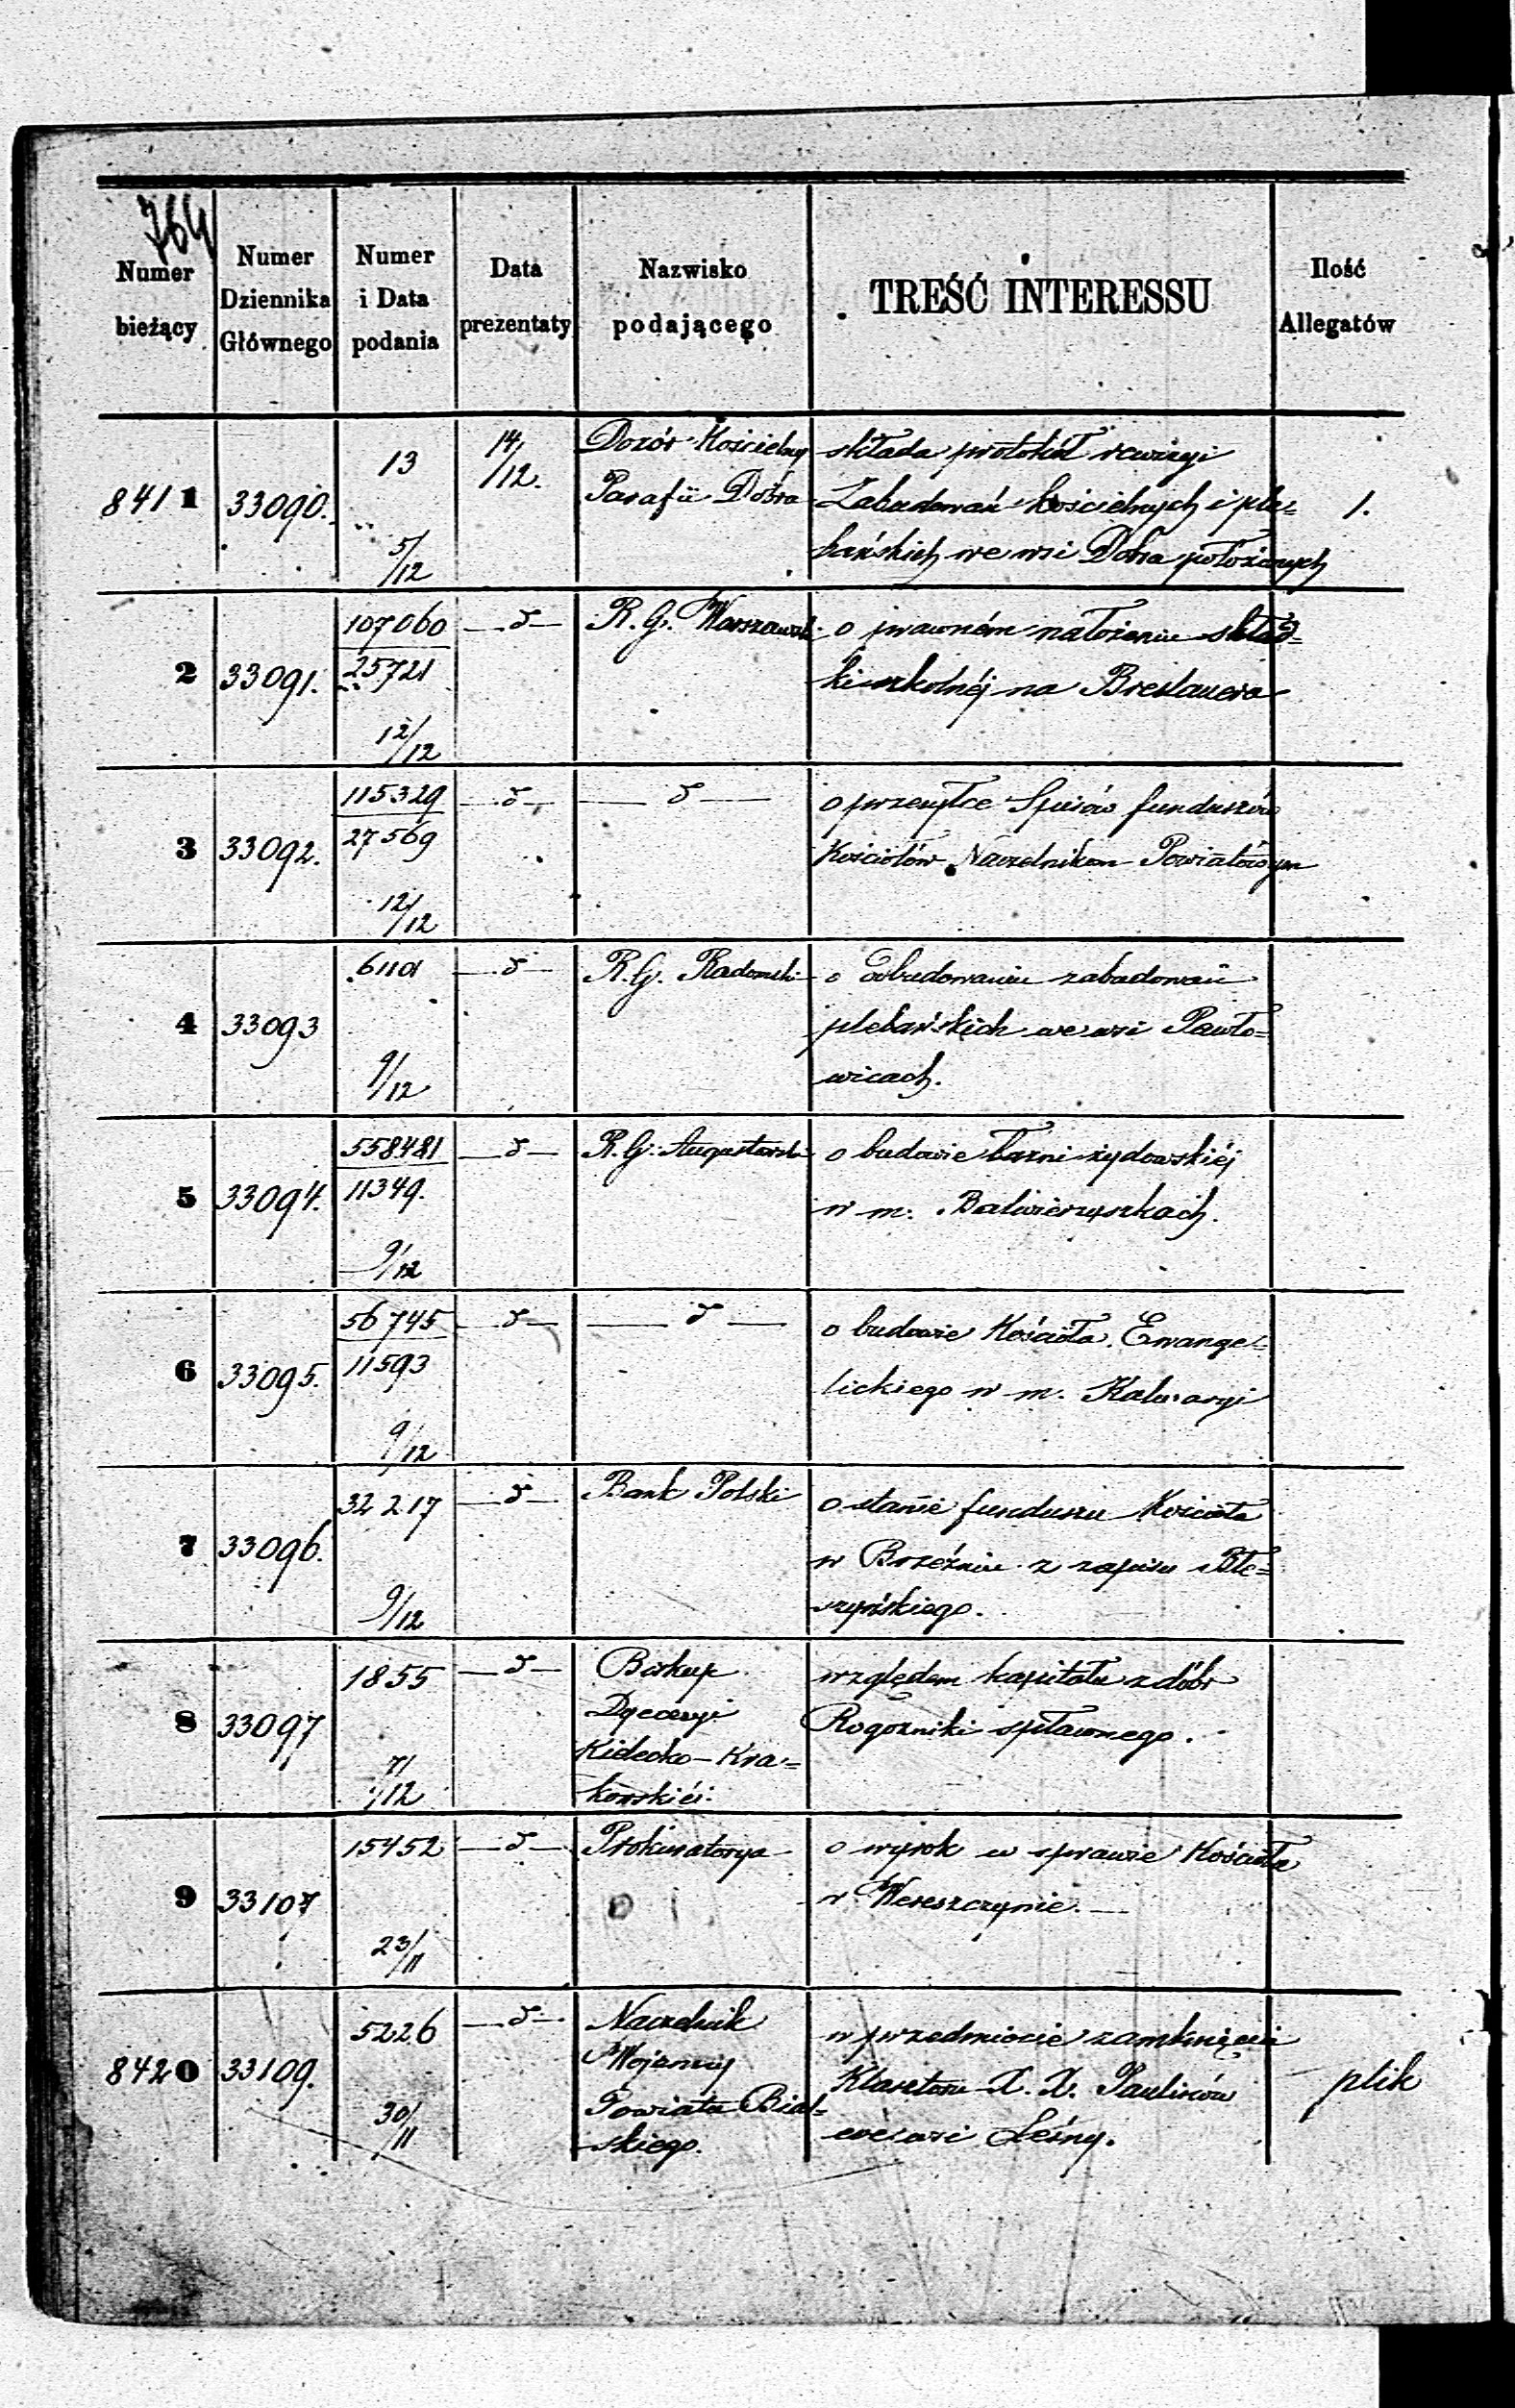 764
Numer bieżący
Numer Dziennika Głównego
Numer i Data podania
Data prezentaty
Nazwisko podającego
TREŚĆ INTERESSU
Ilość Allegatów
8411 33090. 13 5/12 14/12.
Dozór Kościelny
Parafii Dobra
składa protokół rewizyi
Zabudowań kościelnych i ple=
bańskich we wsi Dobra położonych
1.
2 33091. 107060 25721 12/12 — d —
R. G. Warszawski
o prawném nałożeniu skład=
ki szkolnéj na Breslauera
3 33092. 115329 27569 12/12 — d — — d —
o przesyłce Spisów funduszów
Kościołów Naczelnikom Powiatowym
4 33093 61101 9/12 — d —
R. G. Radomski
o odbudowaniu zabudowań
plebańskich we wsi Pawło=
wicach.
5 33094. 558481 11349. 9/12 — d —
R. G. Augustowski
o budowie łazni żydowskiéj
w m. Balwierzyszkach.
6 33095. 56745 11593 9/12 — d — — d —
o budowie Kościoła Ewange=
lickiego w m. Kalwaryi
7 33096. 32217 9/12 — d —
Bank Polski
o stanie funduszu Kościoła
w Brzeźniu z zapisu Błe=
szyńskiego.
8 33097 1855 7/12 — d —
Biskup
Dyecezyi
Kielecko-Kra=
kowskiéj.
względem kapitału z dóbr
Rogozniki spłaconego.
9 33107 15452 23/11 — d —
Prokuratorya
o wyrok w sprawie Kościoła
w Wereszczynie. —
8420 33109. 5226 30/11 — d —
Naczelnik
Wojenny
Powiatu Bial=
skiego.
w przedmiocie zamknięcia
Klasztoru X. X. Paulinów
we wsi Leśny.
plik